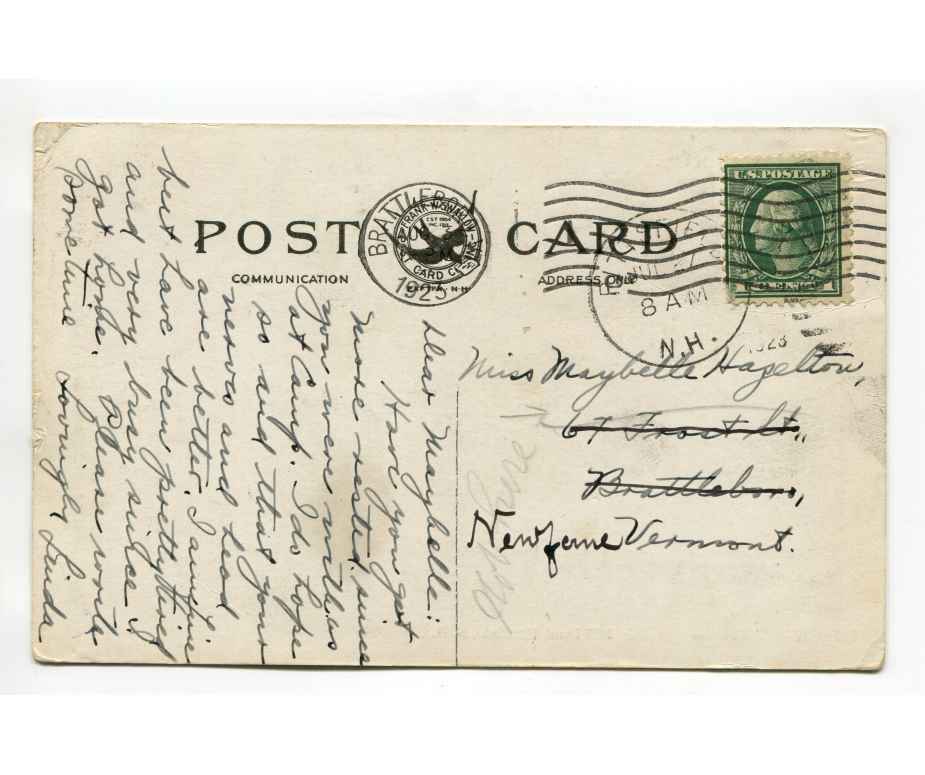 POST CARD
COMMUNICATION
ADDRESS ONLY
FRANK W. SWALLOW
POST CARD CO. INC.
EXETER, N.H.
BRATTLEBORO
1923
8 AM
N.H.
1923
U.S. POSTAGE
1 CENTS 1
Dear Maybelle:
Have you got
more rested since
you were with us
at Camp. I do hope
so and that your
nerves and head
are better. I am fine
but have been pretty tired
and very busy since I
got home. Please write
sometime. Lovingly, Linda
Miss Maybelle Hazelton,
67 Frost St.,
Brattleboro,
Newfane Vermont.